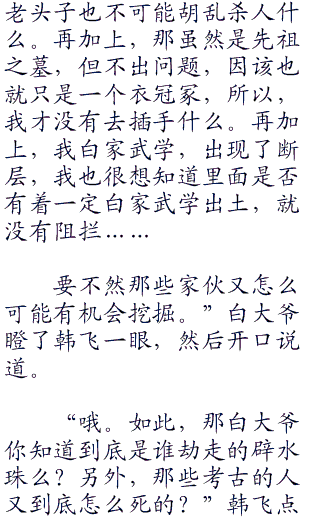 老头子也不可能胡乱杀人什
么。再加上，那虽然是先祖
之墓，但不出问题，因该也
就只是一个衣冠冢，所以，
我才没有去插手什么。再加
上，我白家武学，出现了断
层，我也很想知道里面是否
有着一定白家武学出土，就
没有阻拦……
要不然那些家伙又怎么
可能有机会挖掘。”白大爷
瞪了韩飞一眼，然后开口说
道。
“哦。如此，那白大爷
你知道到底是谁劫走的辟水
珠么？另外，那些考古的人
又到底怎么死的？”韩飞点